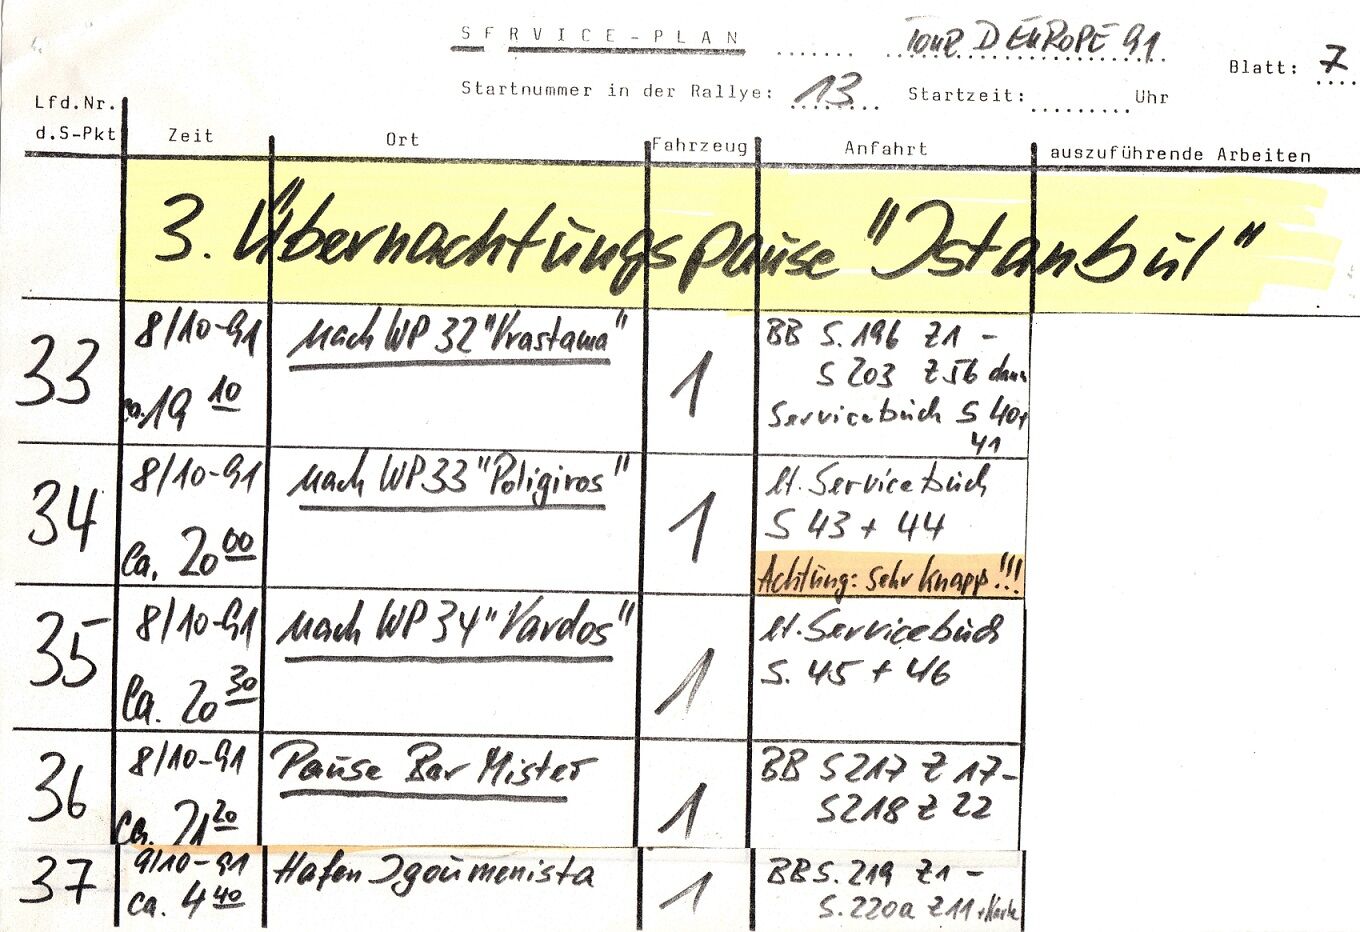 SERVICE-PLAN ....... TOUR D EUROPE 91
Blatt: 7
Startnummer in der Rallye: 13 Startzeit:......... Uhr
Lfd.Nr.
d.S-Pkt Zeit Ort Fahrzeug Anfahrt auszuführende Arbeiten
3. Übernachtungspause "Istanbul"
33 8/10-91 nach WP 32 "Vrastama" 1 BB S. 196 Z1 -
S 203 Z 56 dann
ca. 19 10 Servicebuch S 40+
41
34 8/10-91 nach WP 33 "Poligiros" 1 lt. Servicebuch
ca. 20 00 S 43 + 44
Achtung: sehr knapp!!!
35 8/10-91 nach WP 34 "Vardos" 1 lt. Servicebuch
ca. 20 30 S. 45 + 46
36 8/10-91 Pause Bar Mister 1 BB S 217 Z 17-
ca. 21 20 S 218 Z 22
37 9/10-91 Hafen Igoumenista 1 BB S. 219 Z1 -
ca. 4 40 S. 220a Z11 + Karte